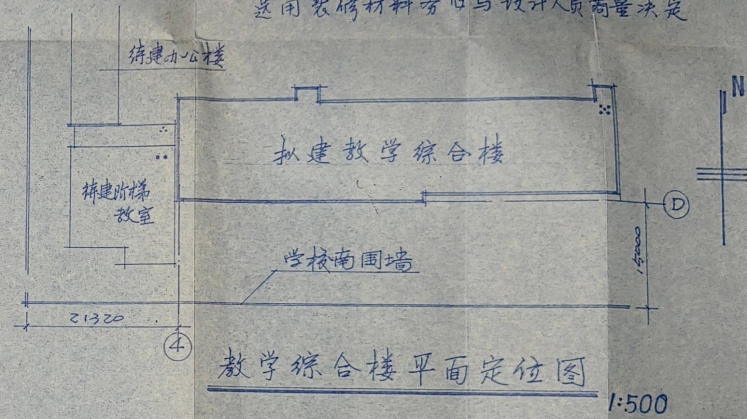 选用装修材料务必与设计人员商量决定
待建办公楼
N
拟建教学综合楼
待建阶梯
教室
D
15000
学校南围墙
21320
4
教学综合楼平面定位图
1:500